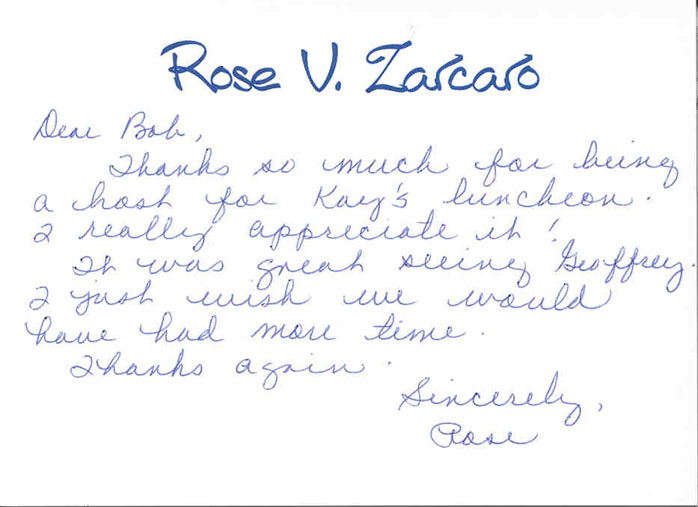 Rose V. Zarcaro
Dear Bob,
Thanks so much for being
a host for Kay's luncheon.
I really appreciate it!
It was great seeing Geoffrey.
I just wish we would
have had more time.
Thanks again.
Sincerely,
Rose